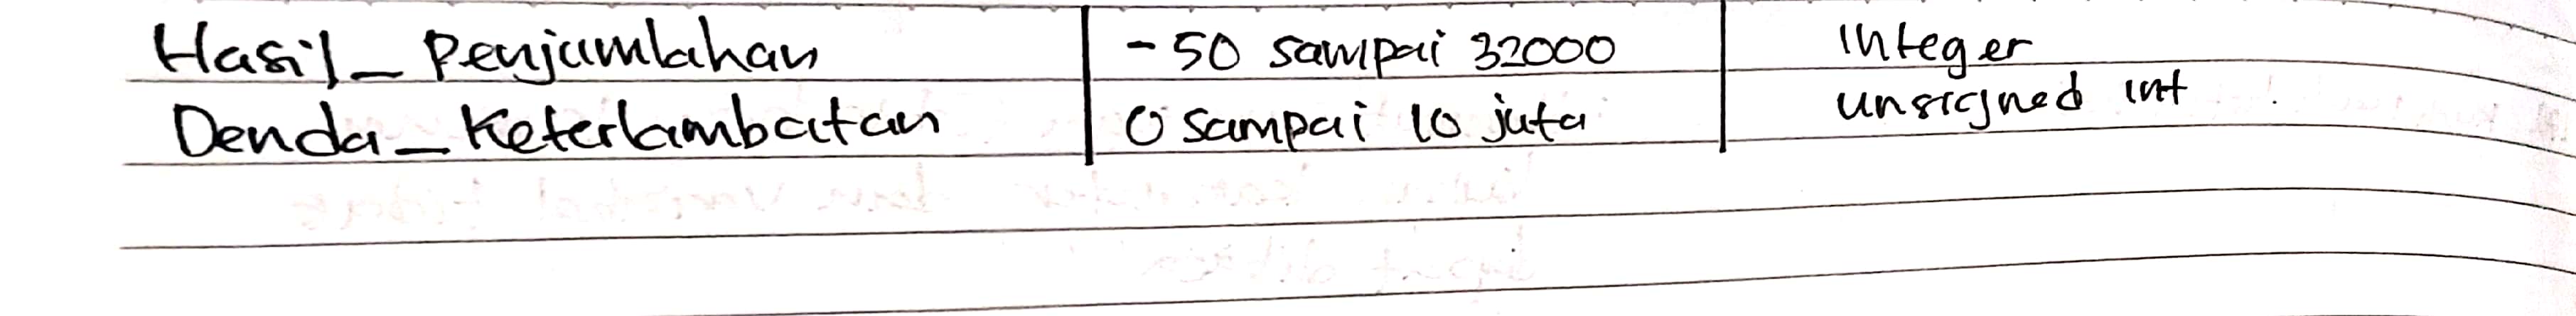 Hasil_Penjumlahan -50 sampai 32000 Integer
Denda_Keterlambatan 0 sampai 10 juta unsigned int